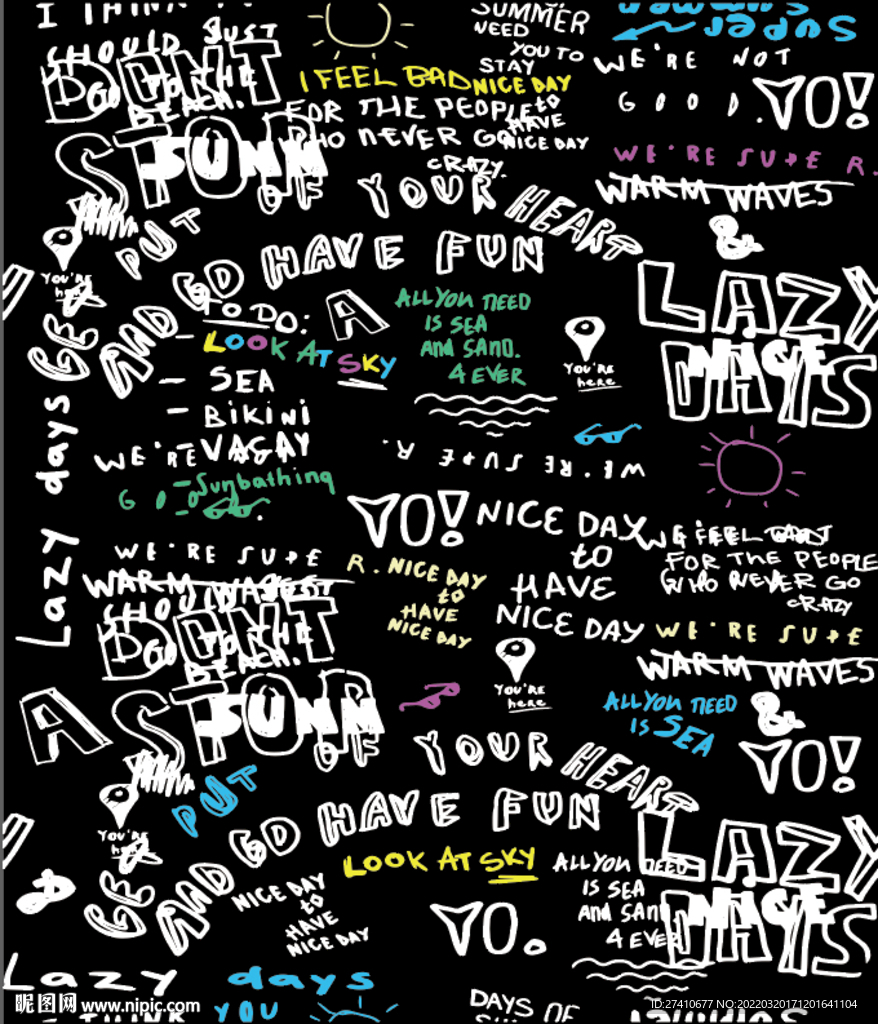 I THINK
SHOULD JUST
DONT
GO TO THE
BEACH.
STOP
SUMM
SUMMER
NEED
YOU TO
STAY
I FEEL BAD
FOR THE PEOPLE
WHO NEVER GO
CRAZY.
NICE DAY
to
HAVE
NICE DAY
SUPER
SUMMER
WE'RE NOT
GOOD.
YO!
WE'RE SUPER.
WARM WAVES
&
LAZY
DAYS
NICE
YOU'RE
here
PUT
OF YOUR HEART
AND GO HAVE FUN
GET
A
TO DO:
- LOOK AT SKY
- SEA
- BIKINI
- VACAY
- Sunbathing
ALL YOU NEED
IS SEA
AND SAND.
4 EVER
YOU'RE
here
Lazy days
WE'RE
GOOD.
WE'RE SUPER.
YO!
NICE DAY
to
HAVE
NICE DAY
WE FEEL
FOR THE PEOPLE
WHO NEVER GO
CRAZY
WE'RE SUPE
R.
WARM WAVES
NICE DAY
to
HAVE
NICE DAY
WE'RE SUPE
WARM WAVES
&
JUST
SHOULD
DONT
GO TO THE
BEACH.
A
STOP
SUMM
YOU'RE
here
ALL YOU NEED
IS SEA
YO!
OF YOUR HEART
PUT
YOU'RE
here
AND GO HAVE FUN
GET
&
LOOK AT SKY
ALL YOU NEED
IS SEA
AND SAND
4 EVER
LAZY
DAYS
NICE
NICE DAY
to
HAVE
NICE DAY
YO.
Lazy days
I THINK YOU
DAYS OF
昵图网 www.nipic.com
ID:27410677 NO:20220320171201641104